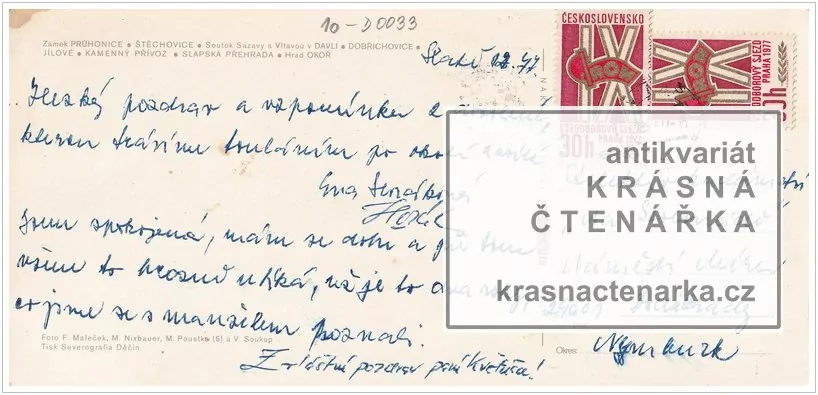 10-D0033
Zámek PRŮHONICE ● ŠTĚCHOVICE ● Soutok Sázavy s Vltavou v DAVLI ● DOBŘICHOVICE ●
JÍLOVÉ ● KAMENNÝ PŘÍVOZ ● SLAPSKÁ PŘEHRADA ● Hrad OKOŘ
ČESKOSLOVENSKO
30h
ODBOROVÝ SJEZD
PRAHA 1977
Hezký pozdrav a vzpomínku z
kterou trávíme touláním po okolí
Eva
jsem spokojená, mám se dobře a při tom
všem to hrozně utíká, už je to
co jsme se s manželem poznali.
Zvláštní pozdrav paní Květuša!
Foto F. Maleček, M. Nixbauer, M. Poustka (5) a V. Soukup
Tisk Severografia Děčín
Náměstí
Okres: Nymburk
antikvariát
KRÁSNÁ
ČTENÁŘKA
krasnactenarka.cz